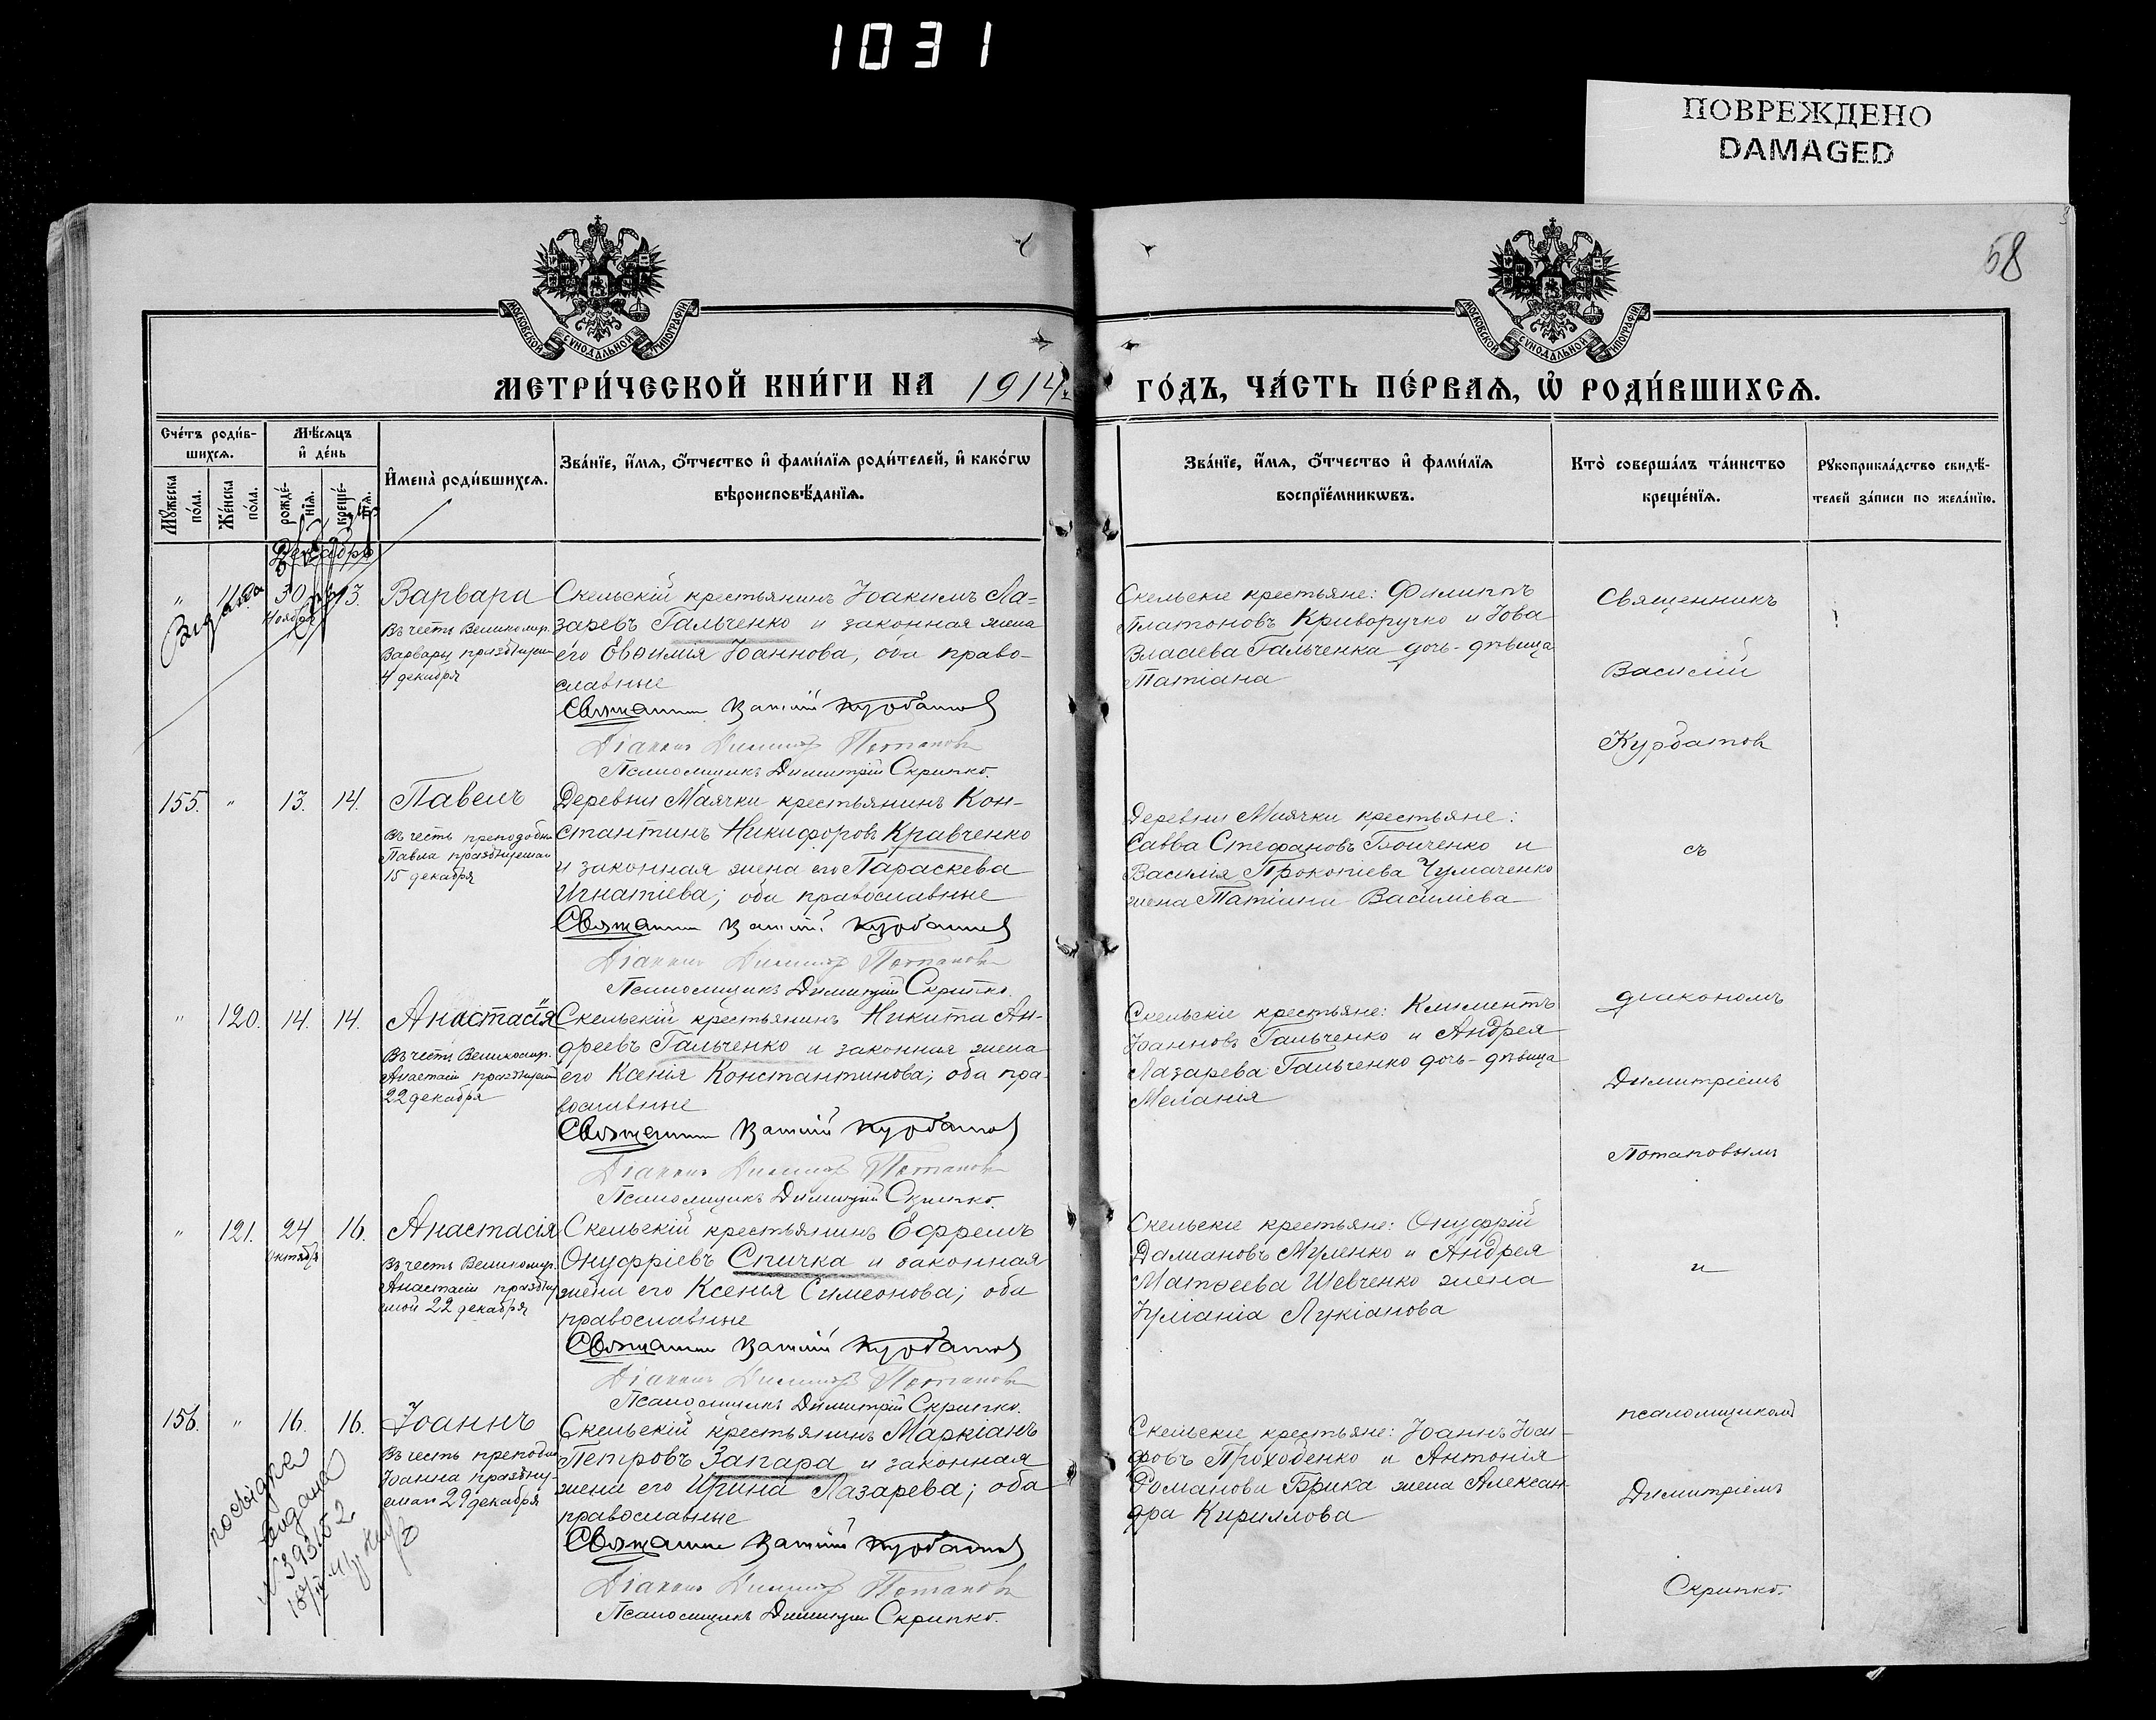 1031
ПОВРЕЖДЕНО
DAMAGED
58
МОСКОВСКОЙ СѴНОДАЛЬНОЙ ТИПОГРАФІИ
МОСКОВСКОЙ СѴНОДАЛЬНОЙ ТИПОГРАФІИ
МЕТРИ́ЧЕСКОЙ КНИ́ГИ НА 1914
ГО́ДЪ, ЧА́СТЬ ПЕ́РВАѦ, Ѡ҆ РОДИ́ВШИХСѦ.
Сче́тъ роди́в-
шихсѧ.
Мꙋ́жеска по́ла.
Же́нска по́ла.
Мѣ́сѧцъ
и҆ де́нь
рожде́-
нїѧ.
креще́-
нїѧ.
И҆мена̀ роди́вшихсѧ.
Зва́нїе, и҆́мѧ, ѻ҆́тчество и҆ фами́лїѧ роди́телей, и҆ како́гѡ
вѣроисповѣ́данїѧ.
Зва́нїе, и҆́мѧ, ѻ҆́тчество и҆ фами́лїѧ
воспрїе́мникѡвъ.
Кто̀ соверша́лъ та́инство
креще́нїѧ.
Рꙋкоприкла́дство свидѣ́-
телей за́писи по жела́нїю.
Декабрь
" 119. 30 13. Варвара
Ноября
Видана
Въ честь Великомур.
Варвары празднуем
4 декабря
Скельскій крестьянинъ Іоакимъ Ла-
заревъ Гальченко и законная жена
его Евѳимія Іоаннова, оба право-
славные
Священникъ Василій Курбатовъ
Діаконъ Димитрій Потаповъ
Псаломщикъ Димитрій Скрипко.
Скельскіе крестьяне: Филиппъ
Платоновъ Криворучко и Іова
Власіева Гальченка дочь-дѣвица
Татіана
Священникъ
Василій
Курбатовъ
155. " 13. 14. Павелъ
Въ честь преподобн
Павла празднуемаго
15 декабря
Деревни Маячки крестьянинъ Кон-
стантинъ Никифоровъ Кравченко
и законная жена его Параскева
Игнатіева; оба православные
Священникъ Василій Курбатовъ
Діаконъ Димитрій Потаповъ
Псаломщикъ Димитрій Скрипко.
Деревни Маячки крестьяне:
Савва Стефановъ Бойченко и
Василія Прокопіева Чумаченко
жена Татіана Василіева
съ
" 120. 14. 14. Анастасія
Въ честь Великомур.
Анастасіи празднуем
22 декабря
Скельскій крестьянинъ Никита Ан-
дреевъ Гальченко и законная жена
его Ксенія Константинова; оба пра-
вославные
Священникъ Василій Курбатовъ
Діаконъ Димитрій Потаповъ
Псаломщикъ Димитрій Скрипко.
Скельскіе крестьяне: Климентъ
Іоанновъ Гальченко и Андрея
Лазарева Гальченко дочь-дѣвица
Меланія
діакономъ
Димитріемъ
Потаповымъ
" 121. 24 16. Анастасія
Октября
Въ честь Великомур.
Анастасіи праздну
емой 22 декабря
Скельскій крестьянинъ Ефремъ
Онуфріевъ Спичка и законная
жена его Ксенія Симеонова; оба
православные
Священникъ Василій Курбатовъ
Діаконъ Димитрій Потаповъ
Псаломщикъ Димитрій Скрипко.
Скельскіе крестьяне: Онуфрій
Даміановъ Муленко и Андрея
Матѳеева Шевченко жена
Іуліанія Лукіанова
и
156. " 16. 16. Іоаннъ
Въ честь преподоб
Іоанна праздну-
емаго 29 декабря
посвідка
видана
N 393152
Скельскій крестьянинъ Маркіанъ
Петровъ Запара и законная
жена его Ирина Лазарева; оба
православные
Священникъ Василій Курбатовъ
Діаконъ Димитрій Потаповъ
Псаломщикъ Димитрій Скрипко.
Скельскіе крестьяне: Іоаннъ Іоси-
фовъ Проходенко и Антонія
Романова Брика жена Алексан-
дра Кириллова
псаломщикомъ
Димитріемъ
Скрипко.